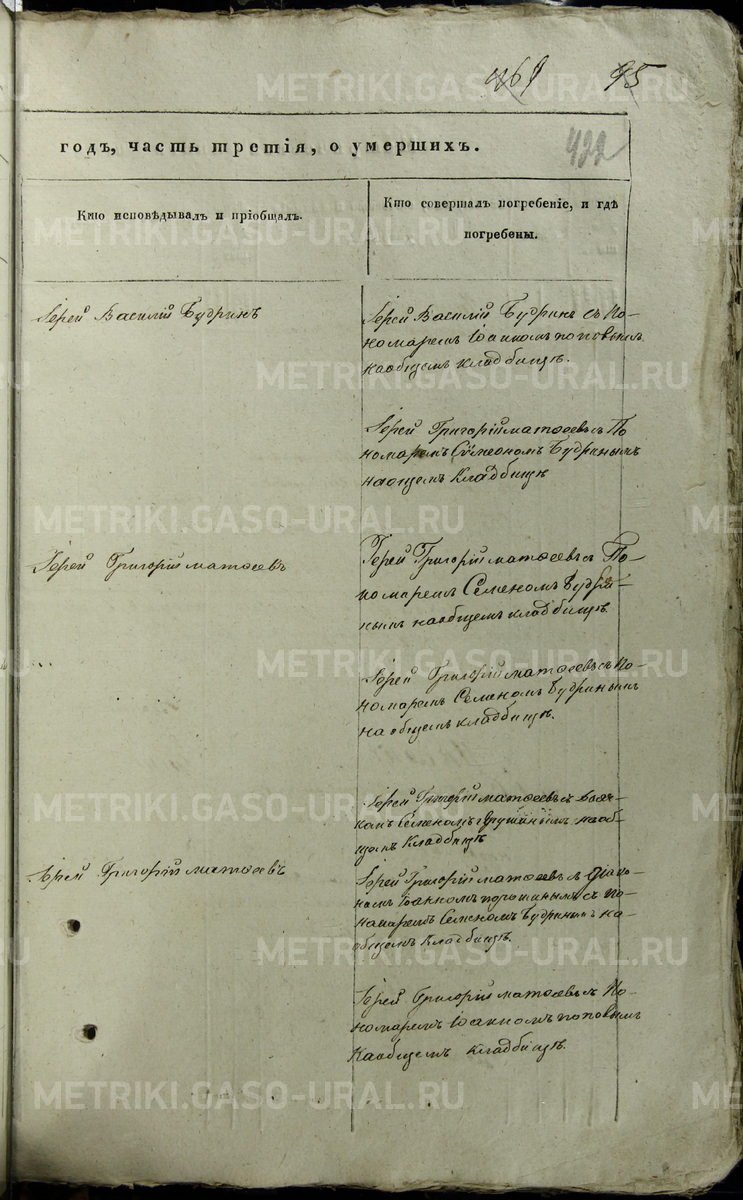 469 95
годъ, часть третія, о умершихъ.
422
Кто исповѣдывалъ и пріобщалъ.
Кто совершалъ погребеніе, и гдѣ
погребены.
Іерей Василій Будринъ
Іерей Василій Будринъ съ По-
номаремъ Іоанномъ поповымъ
наобщемъ кладбищѣ.
Іерей Григорій матѳеевъ съ По
номаремъ Симеономъ Будринымъ
наобщемъ Кладбищѣ
Іерей Григорій матѳеевъ
Іерей Григорій матѳеевъ съ По-
номаремъ Семеномъ Будри-
нымъ наобщемъ кладбищѣ
Іерей Григорій матѳеевъ съ по-
номаремъ Семеномъ Будринымъ
на общемъ кладбищѣ.
Іерей Григорій матѳеевъ съ Дьяч-
комъ Семеномъ наоб-
щемъ Кладбищѣ
Іерей Григорій матѳеевъ
Іерей Григорій матѳеевъ съ Діако-
номъ Іоанномъ порошинымъ съ по-
номаремъ Семеномъ Будринымъ на-
общемъ Кладбищѣ.
Іерей Григорій матѳеевъ съ По-
номаремъ Іоанномъ поповымъ
Наобщемъ кладбищѣ.
METRIKI.GASO-URAL.RU